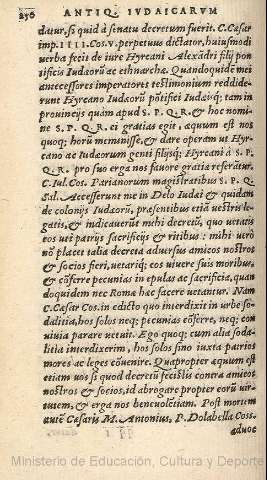 256 ANTIQ. IVDAICARVM
datur, si quid à senatu decretum fuerit. C. Cæsar
imp. IIII. Cos. V. perpetuus dictator, huiusmodi
verba fecit de iure Hyrcani Alexãdri filij pon
tificis Iudæorũ ac ethnarchæ. Quandoquidẽ mei
antecessores imperatores testimonium reddide-
runt Hyrcano Iudæorũ põtifici Iudæisq; tam in
prouincijs quàm apud S. P. Q. R. & hoc nomi-
ne S. P. Q. R. ei gratias egit, æquum est nos
quoq; horũ meminisse, & dare operam ut Hyr-
cano ac Iudæorum genti filijsq; Hyrcani à S. P.
Q. R. pro suo erga nos fauore gratia referatur.
C. Iul. Cos. Parianorum magistratibus S. P. Q.
Sal. Accesserunt me in Delo Iudæi & quidam
de colonijs Iudæorũ, præsentibus etiã vestris le-
gatis, & indicauerũt mihi decretũ, quo uetatis
eos uti patrijs sacrificijs & ritibus: mihi uerò
nõ placet talia decreta aduersus amicos nostros
& socios fieri, uetariq; eos viuere suis moribus,
& cõferre pecunias in epulas ac sacrificia, quan
doquidem nec Romæ hac facere vetantur. Nam
C. Cæsar Cos. in edicto quo interdixit in urbe so-
dalitia, hos solos neq; pecunias cõferre, neq; con
uiuia parare vetuit. Ego quoq; cum alia soda-
litia interdixerim, hos solos sino iuxta patrios
mores ac leges cõuenire. Quapropter æquum est
etiam uos si quod decretũ fecistis contra amicos
nostros & socios, id abrogare propter eorũ vir-
tutem, & erga nos beneuolẽtiam. Post mortem
autẽ Cæsaris M. Antonius, P. Dolabella Coss.
aduoc
Ministerio de Educación, Cultura y Deporte